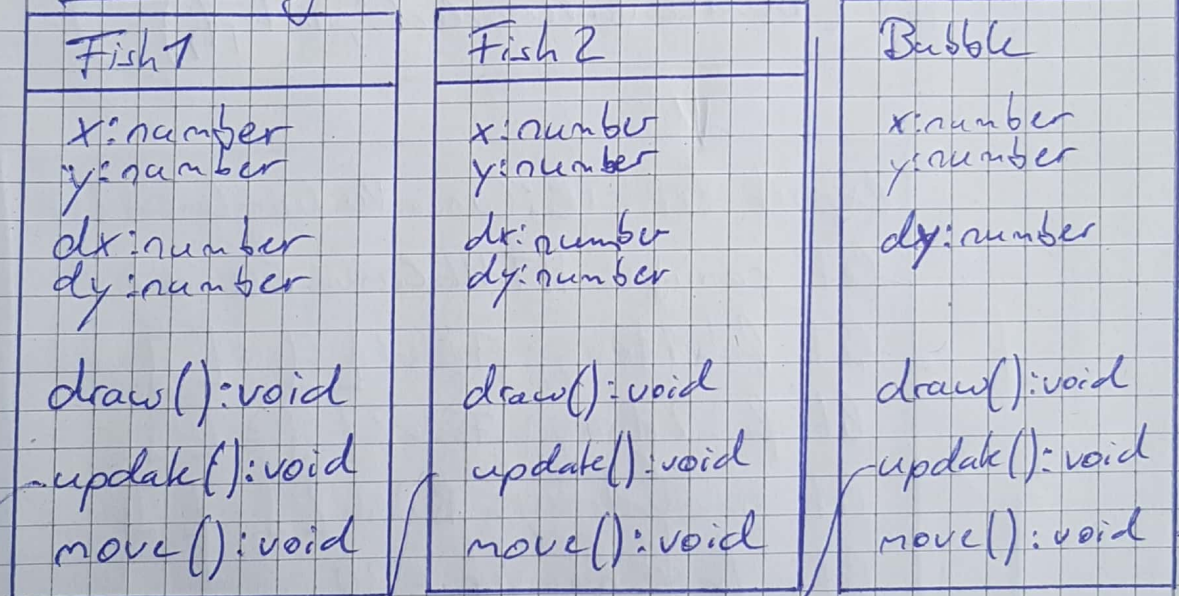 Fish 1
x: number
y: number
dx: number
dy: number
draw(): void
update(): void
move(): void
Fish 2
x: number
y: number
dx: number
dy: number
draw(): void
update(): void
move(): void
Bubble
x: number
y: number
dy: number
draw(): void
update(): void
move(): void